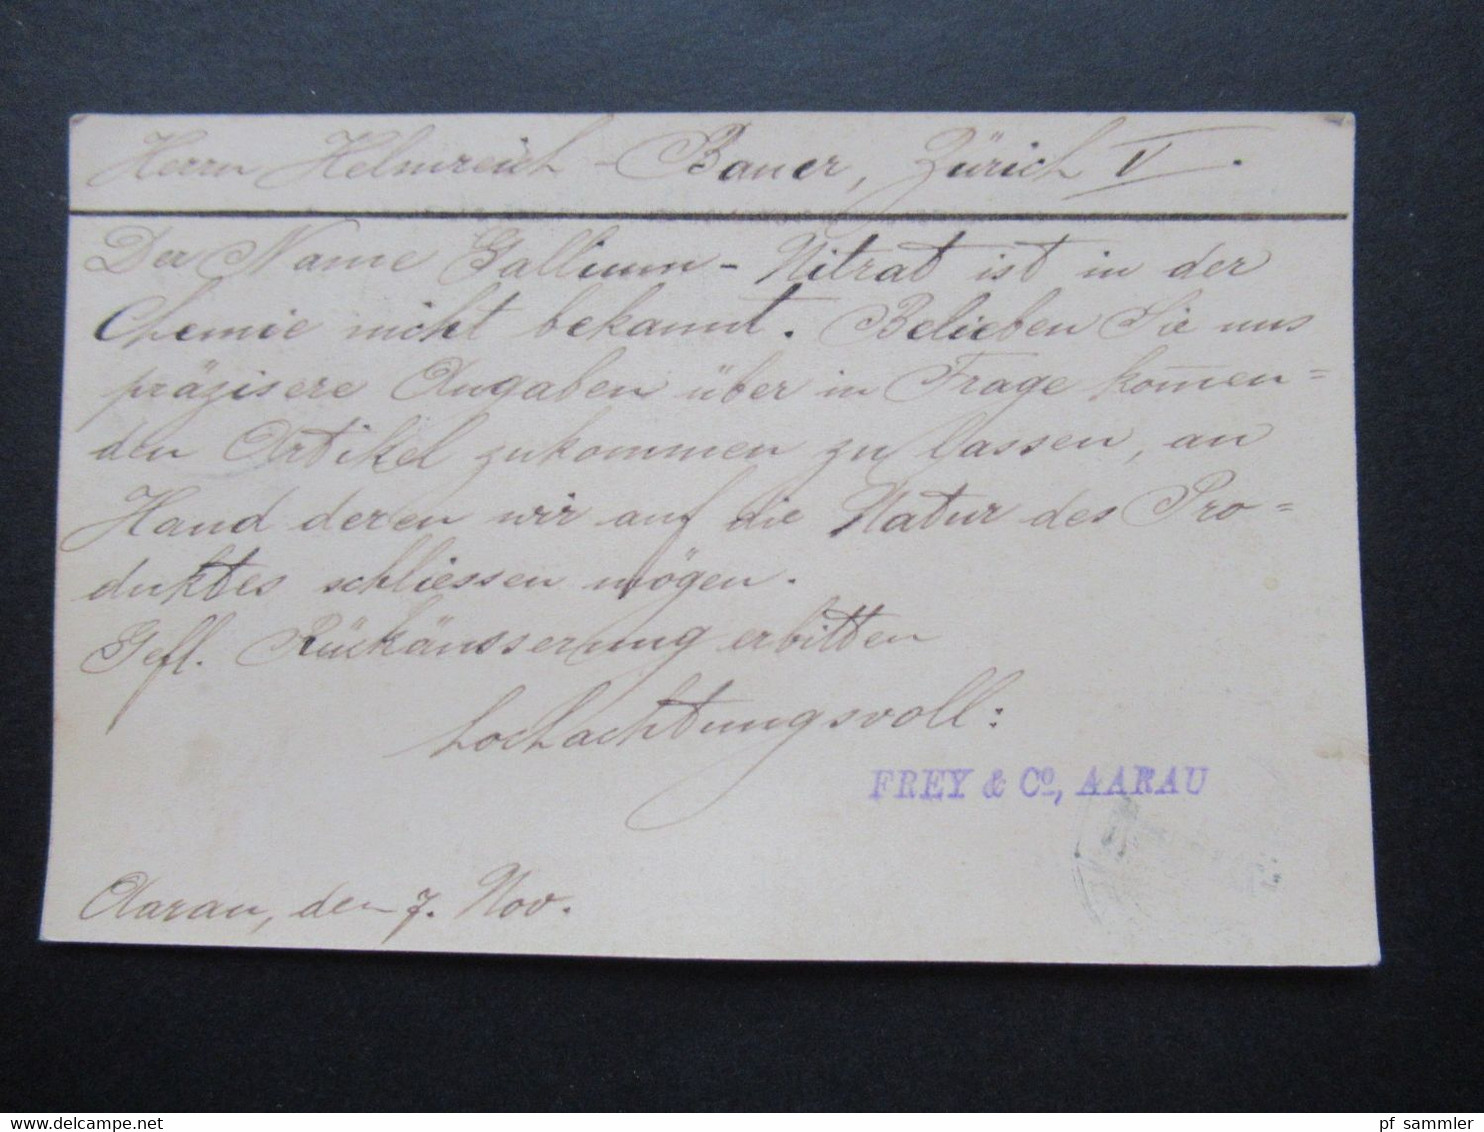 Herrn Helmreich-Bauer, Zürich V.
Der Name Gallium-Nitrat ist in der
Chemie nicht bekannt. Belieben Sie uns
präzisere Angaben über in Frage kom̅en=
den Artikel zukommen zu lassen, an
Hand deren wir auf die Natur des Pro=
duktes schliessen mögen.
Gefl. Rückäusserung erbitten
hochachtungsvoll:
FREY & Cº, AARAU
Aarau, den 7. Nov.
www.delcampe.net
pf_sammler